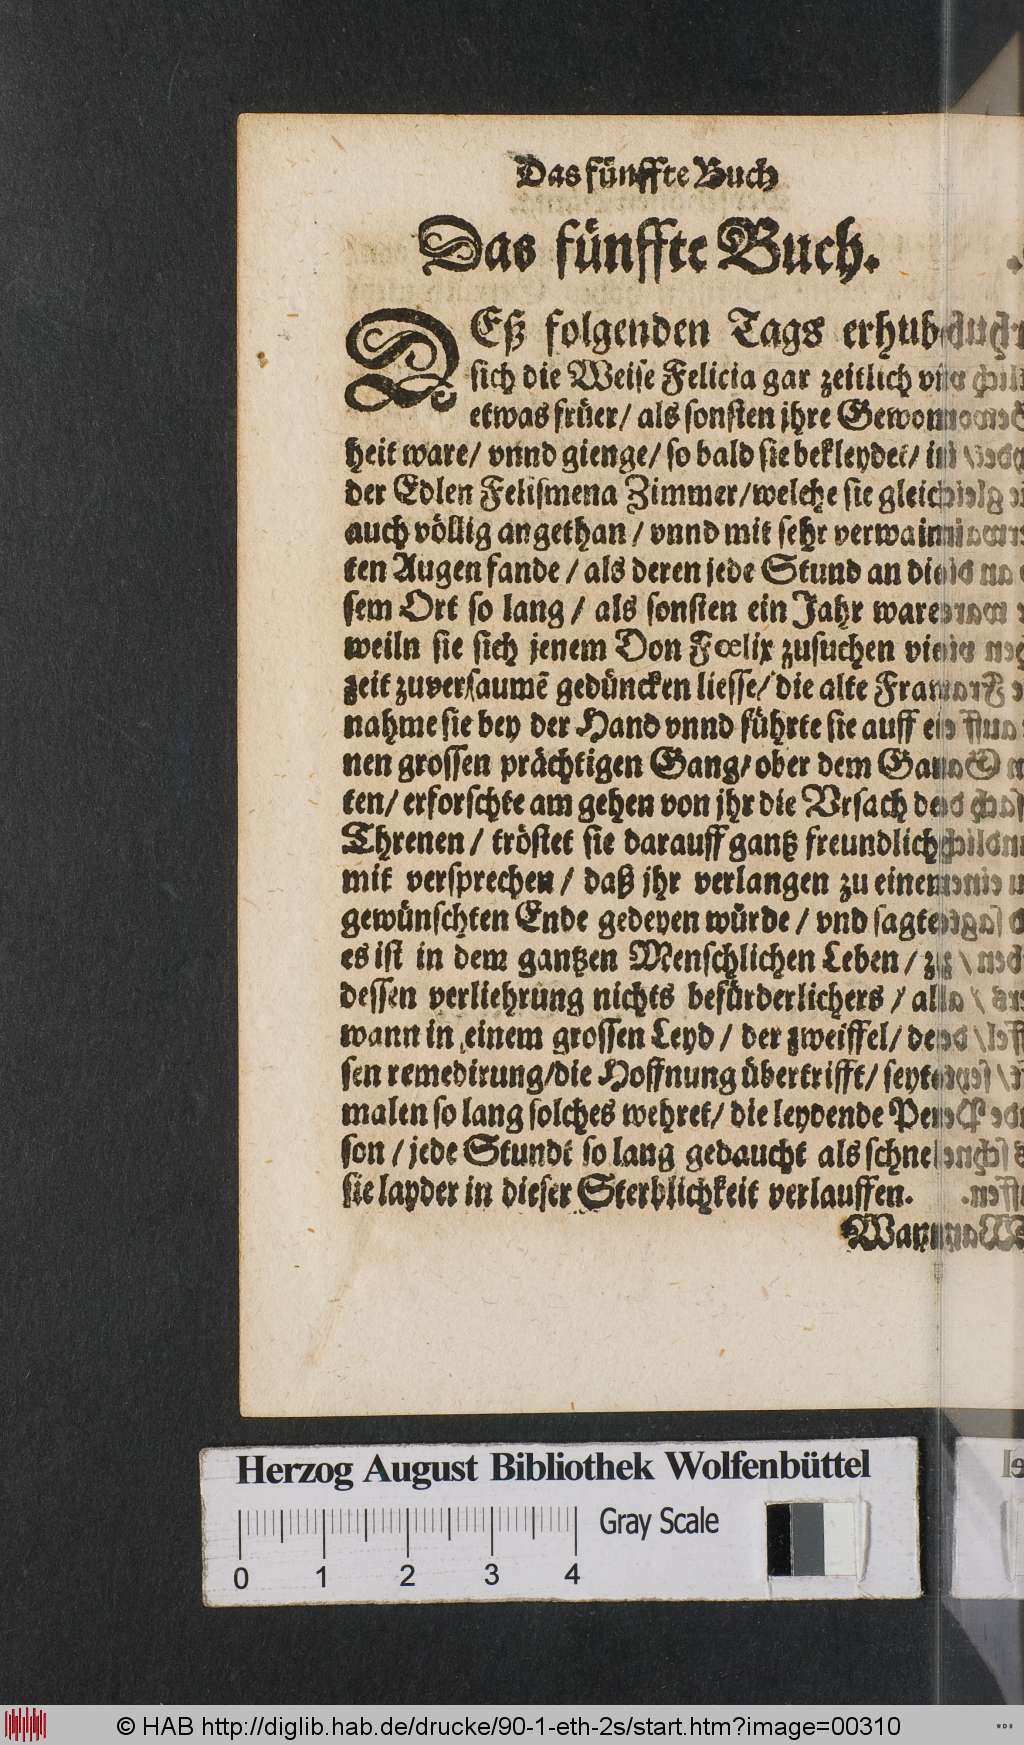 Das fünffte Buch
Das fünffte Buch.
DEß folgenden Tags erhub
sich die Weise Felicia gar zeitlich vñ
etwas früer/ als sonsten jhre Gewon-
heit ware/ vnnd gienge/ so bald sie bekleydet/ in
der Edlen Felismena Zimmer/welche sie gleich
auch völlig angethan/ vnnd mit sehr verwain-
ten Augen fande/ als deren jede Stund an die-
sem Ort so lang/ als sonsten ein Jahr ware
weiln sie sich jenem Don Fœlix zusuchen viel
zeit zuversaumẽ geduncken liesse/ die alte Fraw
nahme sie bey der Hand vnnd führte sie auff ei-
nen grossen prächtigen Gang/ ober dem Gar-
ten/ erforschte am gehen von jhr die Vrsach der
Threnen/ tröstet sie darauff gantz freundlich
mit versprechen/ daß jhr verlangen zu einem
gewünschten Ende gedeyen würde/ vnd sagte
es ist in dem gantzen Menschlichen Leben/ zu
dessen verliehrung nichts befürderlichers/ als
wann in einem grossen Leyd/ der zweiffel/ des-
sen remedirung/die Hoffnung übertrifft/ seyte-
malen so lang solches wehret/ die leydende Per-
son/ jede Stundt so lang gedaucht als schnel
sie layder in dieser Sterblichkeit verlauffen.
Wann
Herzog August Bibliothek Wolfenbüttel
Gray Scale
0 1 2 3 4
© HAB http://diglib.hab.de/drucke/90-1-eth-2s/start.htm?image=00310